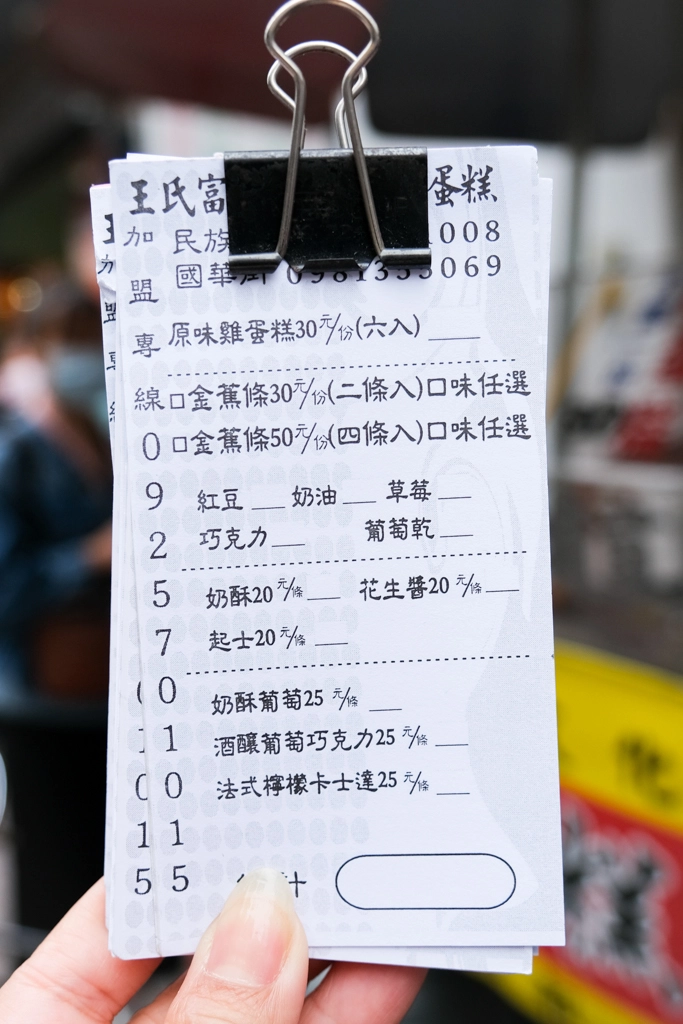 王氏富
蛋糕
民族
008
國華街 0981355069
原味雞蛋糕30元/份(六入)
口金蕉條30元/份(二條入)口味任選
口金蕉條50元/份(四條入)口味任選
紅豆 奶油 草莓
巧克力 葡萄乾
奶酥20元/條 花生醬20元/條
起士20元/條
奶酥葡萄25元/條
酒釀葡萄巧克力25元/條
法式檸檬卡士達25元/條
計
加盟專線0925701015